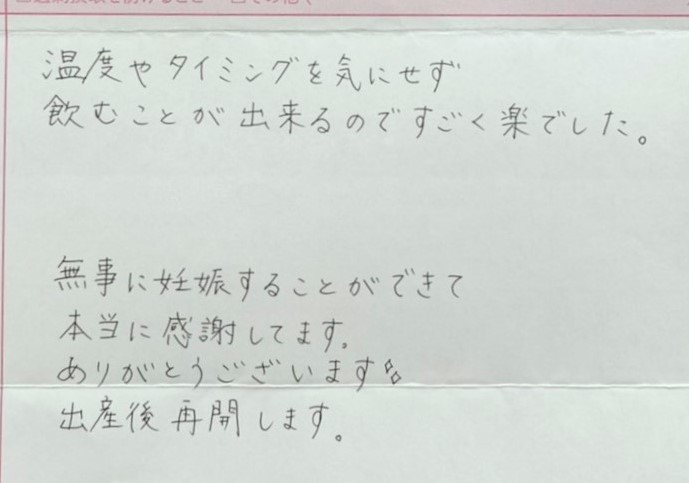 温度やタイミングを気にせず
飲むことが出来るのですごく楽でした。
無事に妊娠することができて
本当に感謝してます。
ありがとうございます
出産後再開します。